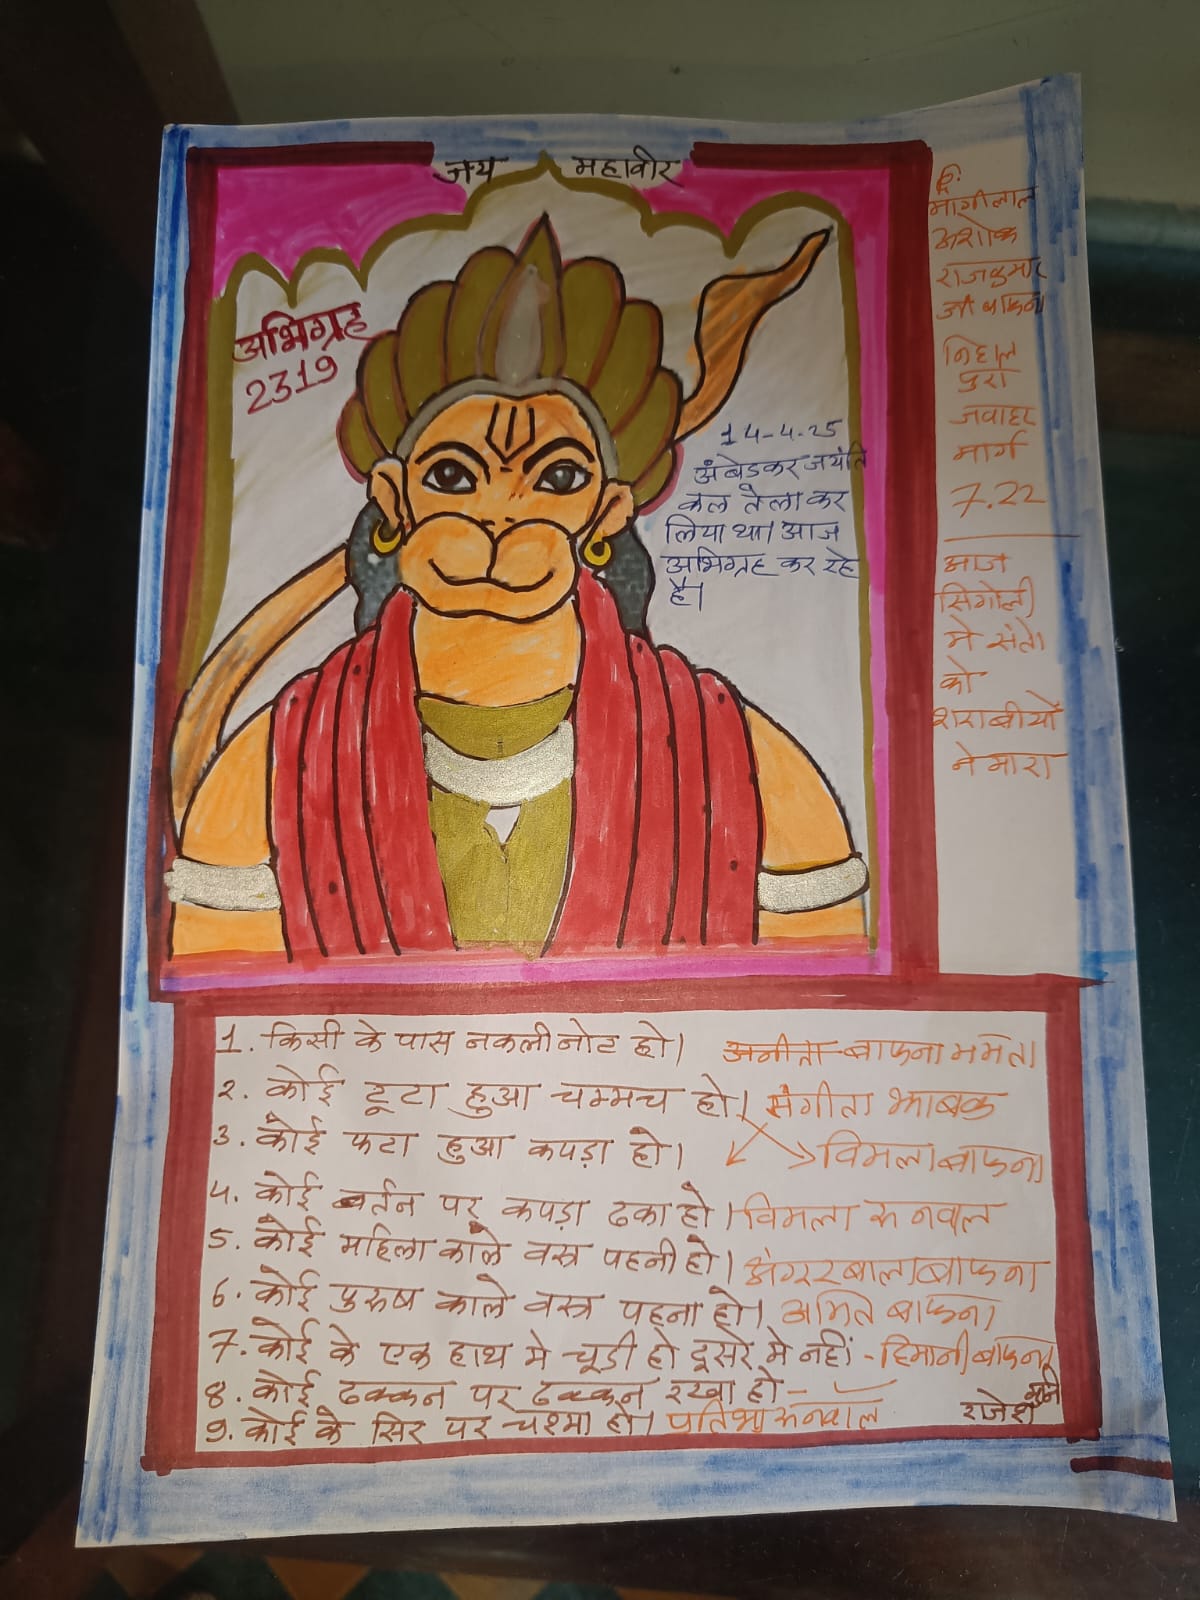 जय महावीर
अभिग्रह
2319
14-4-25
अंबेडकर जयंति
कल तेला कर
लिया था। आज
अभिग्रह कर रहे
है।
मांगीलाल
अशोक
राजकुमार
जी बाफना
निहाल
पुरा
जवाहर
मार्ग
7.22
आज
सिंगोली
मे संतो
को
शराबीयों
ने मारा
1. किसी के पास नकली नोट हो। अनीता बाफना ममता
2. कोई टूटा हुआ चम्मच हो। संगीता झाबक
3. कोई फटा हुआ कपड़ा हो। विमला बाफना
4. कोई बर्तन पर कपड़ा ढका हो। विमला रुनवाल
5. कोई महिला काले वस्त्र पहनी हो। अंगुरबाला बाफना
6. कोई पुरुष काले वस्त्र पहना हो। अमित बाफना
7. कोई के एक हाथ मे चूडी हो दूसरे मे नहीं - हिमानी बाफना
8. कोई ढक्कन पर ढक्कन रखा हो-
9. कोई के सिर पर चश्मा हो। प्रतिभा रुनवाल
राजेश मुनि